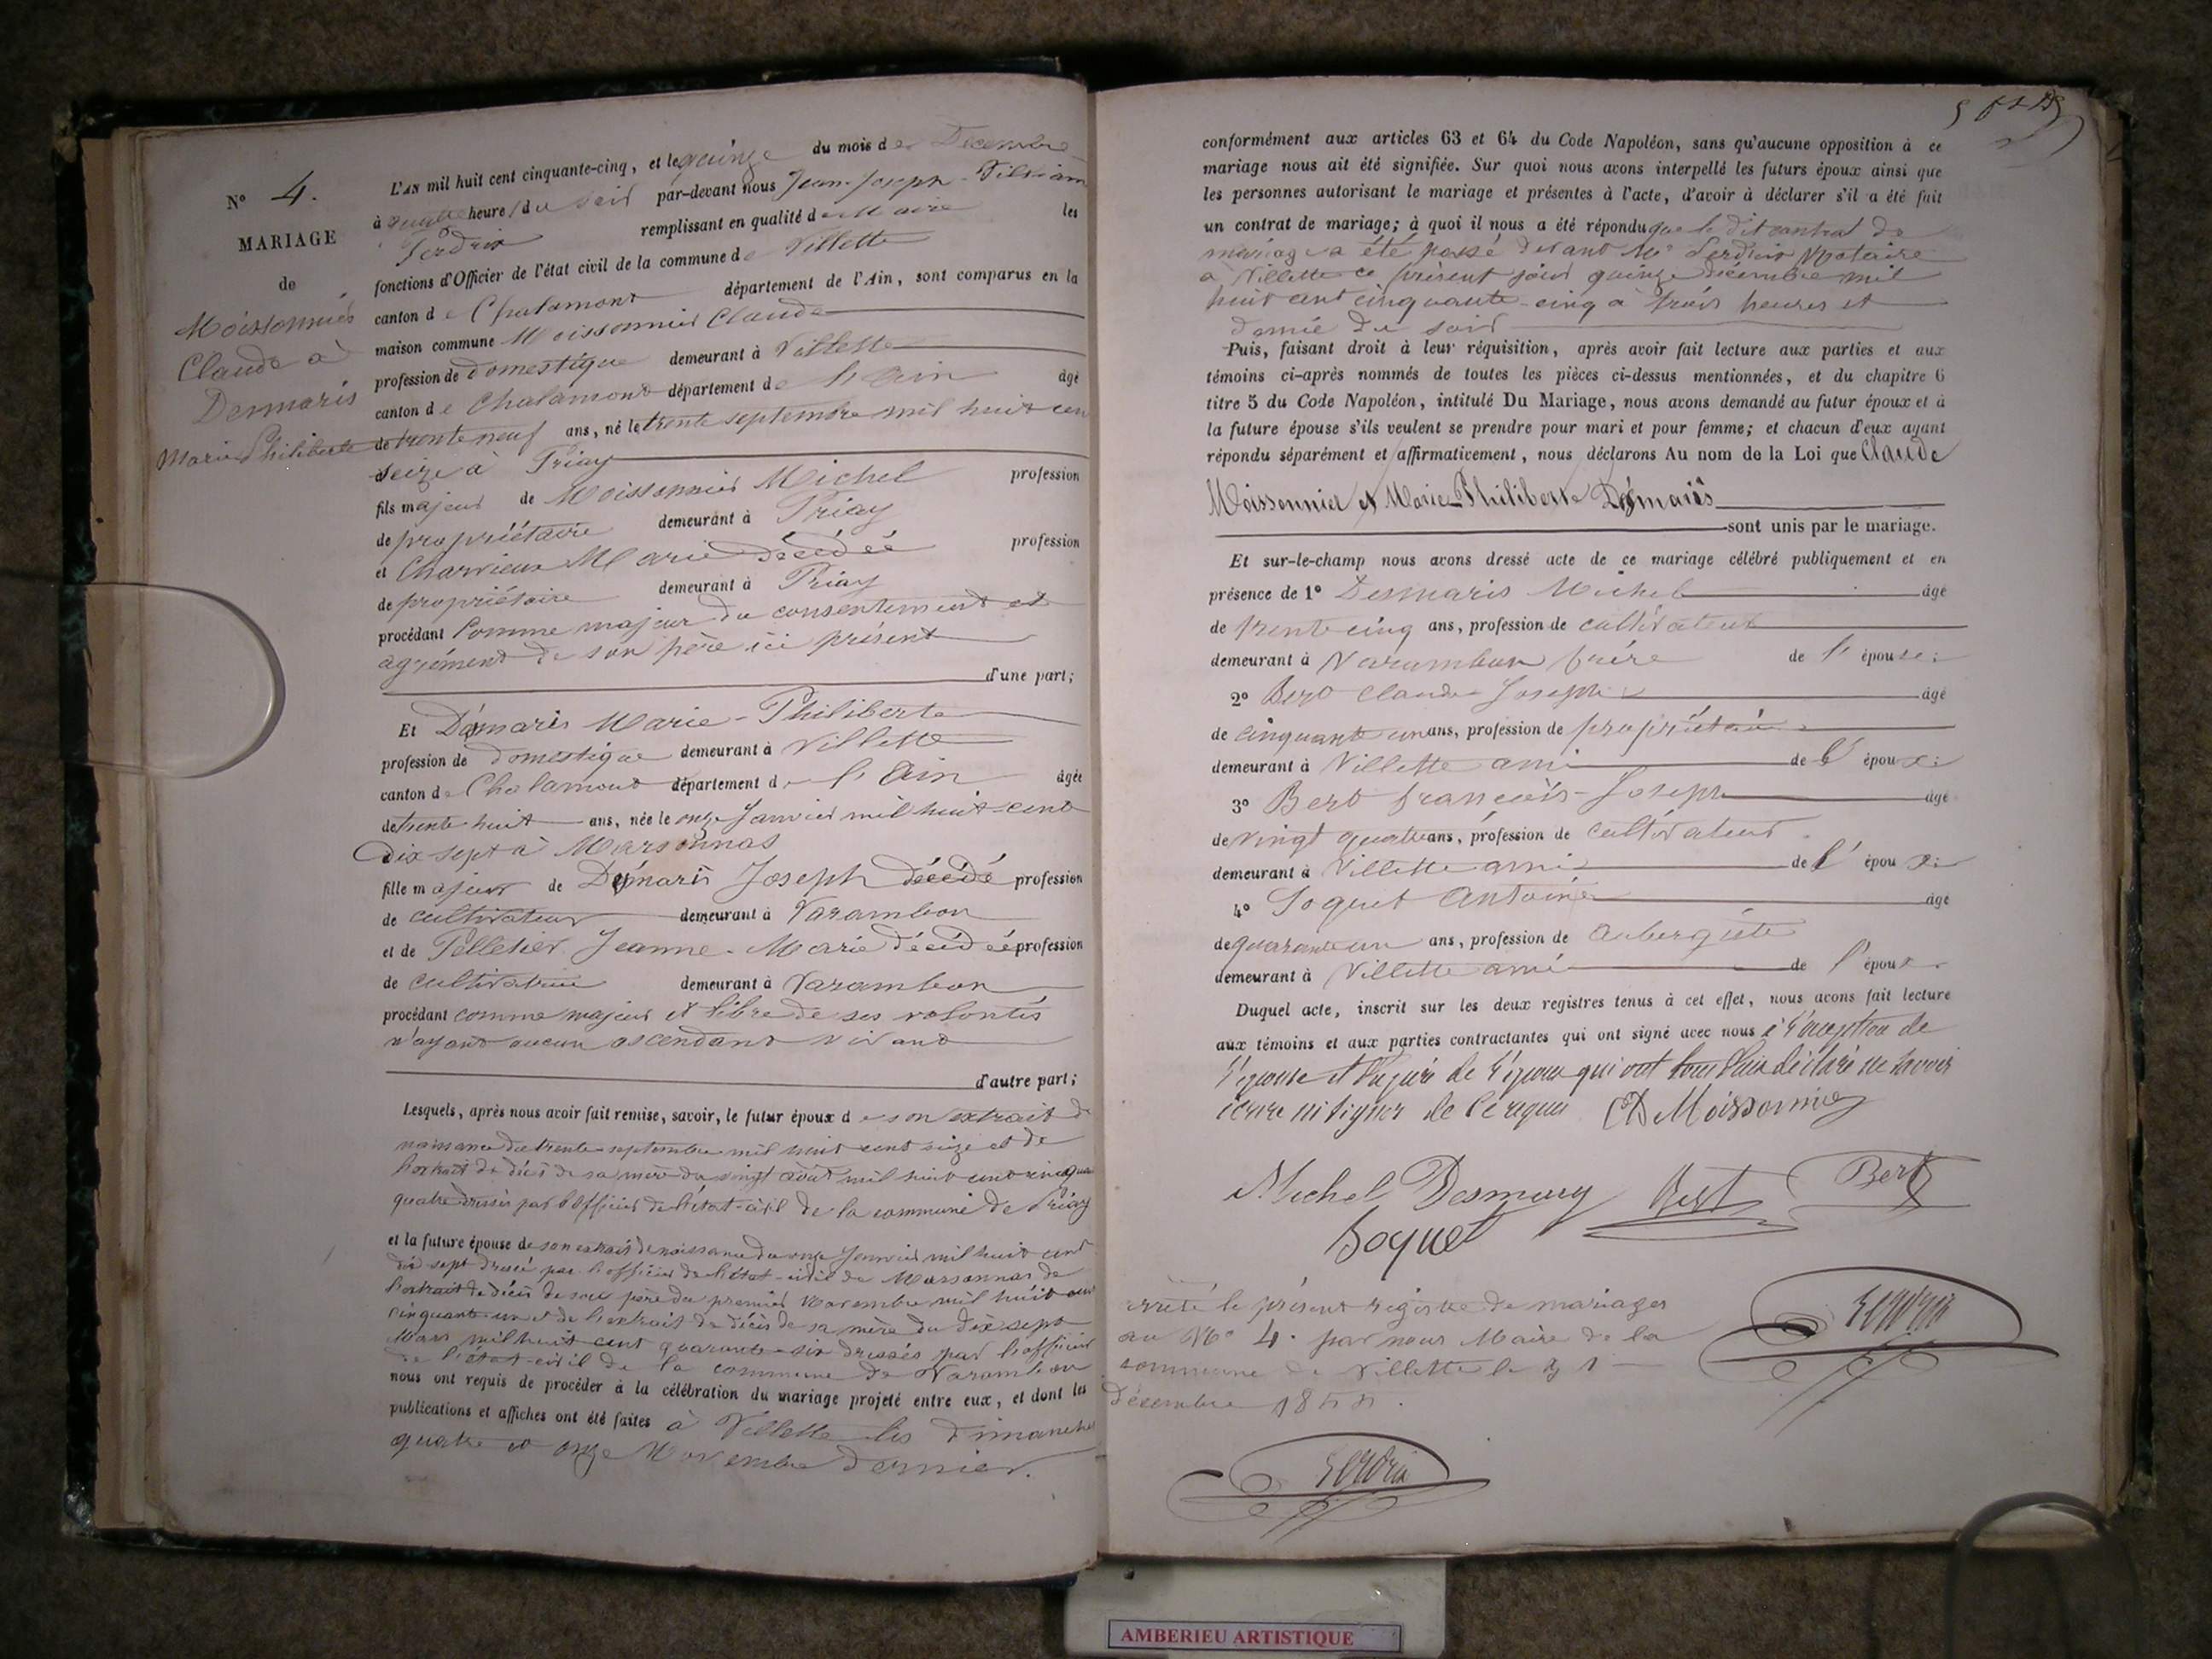 N° 4.
MARIAGE
de
Moissonnier
Claude à
Desmaris
Marie Philiberte
L'AN mil huit cent cinquante-cinq, et le quinze du mois de Décembre
à quatre heures du soir par-devant nous Jean-Joseph
Perdrix remplissant en qualité de Maire les
fonctions d'Officier de l'état civil de la commune de Villette
canton de Chalamont département de l'Ain, sont comparus en la
maison commune Moissonnier Claude
profession de domestique demeurant à Villette
canton de Chalamont département de l'Ain âgé
de trente neuf ans, né le trente septembre mil huit cent
seize à Priay
fils majeur de Moissonnier Michel profession
de propriétaire demeurant à Priay
et Charvieux Marie décédée profession
de propriétaire demeurant à Priay
procédant comme majeur du consentement et
agrément de son père ici présent
d'une part;
Et Démaris Marie-Philiberte
profession de domestique demeurant à Villette
canton de Chalamont département de l'Ain âgée
de trente huit ans, née le onze Janvier mil huit cent
dix sept à Marsonnas
fille majeur de Démaris Joseph décédé profession
de cultivateur demeurant à Varambon
et de Pelletier Jeanne-Marie décédée profession
de cultivatrice demeurant à Varambon
procédant comme majeur et libre de ses volontés
n'ayant aucun ascendant vivant
d'autre part;
Lesquels, après nous avoir fait remise, savoir, le futur époux de son extrait de
naissance du trente septembre mil huit cent seize et de
l'extrait de décès de sa mère du vingt août mil huit cent cinquante
quatre dressés par l'officier de l'état-civil de la commune de Priay
et la future épouse de son extrait de naissance du onze Janvier mil huit cent
dix sept dressé par l'officier de l'état-civil de Marsonnas de
l'extrait de décès de son père du premier Novembre mil huit cent
cinquante un et de l'extrait de décès de sa mère du dix sept
Mars mil huit cent quarante-six dressés par l'officier
de l'état-civil de la commune de Varambon
nous ont requis de procéder à la célébration du mariage projeté entre eux, et dont les
publications et affiches ont été faites à Villette les dimanches
quatre et onze Novembre dernier.
conformément aux articles 63 et 64 du Code Napoléon, sans qu'aucune opposition à ce
mariage nous ait été signifiée. Sur quoi nous avons interpellé les futurs époux ainsi que
les personnes autorisant le mariage et présentes à l'acte, d'avoir à déclarer s'il a été fait
un contrat de mariage; à quoi il nous a été répondu que le dit contrat de
mariage a été passé devant Me Perdrix Notaire
à Villette ce présent jour quinze décembre mil
huit cent cinquante-cinq à trois heures et
demie du soir
Puis, faisant droit à leur réquisition, après avoir fait lecture aux parties et aux
témoins ci-après nommés de toutes les pièces ci-dessus mentionnées, et du chapitre 6
titre 5 du Code Napoléon, intitulé Du Mariage, nous avons demandé au futur époux et à
la future épouse s'ils veulent se prendre pour mari et pour femme; et chacun d'eux ayant
répondu séparément et affirmativement, nous déclarons Au nom de la Loi que Claude
Moissonnier et Marie Philiberte Démaris
sont unis par le mariage.
Et sur-le-champ nous avons dressé acte de ce mariage célébré publiquement et en
présence de 1° Desmaris Michel âgé
de trente cinq ans, profession de cultivateur
demeurant à Varambon frère de l'épouse;
2° Bert Claude Joseph âgé
de cinquante un ans, profession de propriétaire
demeurant à Villette ami de l'époux;
3° Bert françois-Joseph âgé
de vingt quatre ans, profession de cultivateur
demeurant à Villette ami de l'époux;
4° Soquet Antoine âgé
de quarante un ans, profession de Aubergiste
demeurant à Villette ami de l'époux.
Duquel acte, inscrit sur les deux registres tenus à cet effet, nous avons fait lecture
aux témoins et aux parties contractantes qui ont signé avec nous à l'exception de
l'épouse et du père de l'époux qui ont tous deux déclaré ne savoir
écrire ni signer de ce requis Cde Moissonnier
Michel Desmary Bert Bert
Soquet
arrêté le présent registre de mariages
au No 4. par nous Maire de la
commune de Villette le 31
Décembre 1855.
Perdrix
Perdrix
AMBERIEU ARTISTIQUE